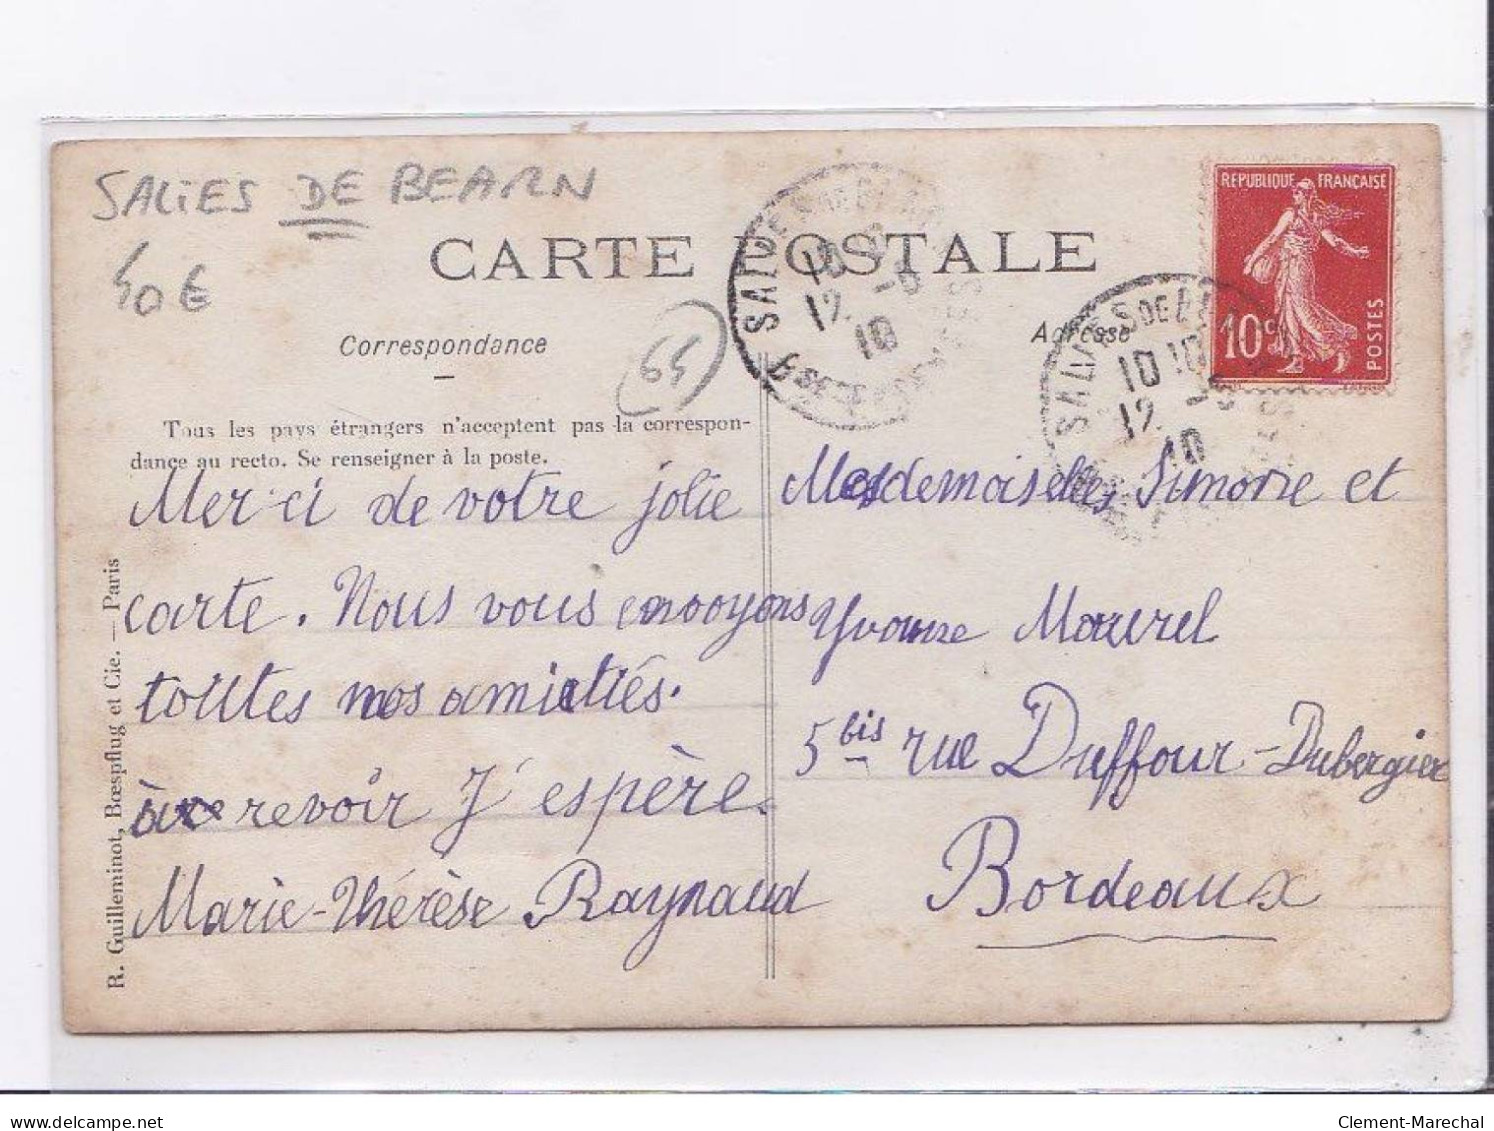 SALIES DE BEARN
40€
CARTE POSTALE
RÉPUBLIQUE FRANÇAISE
10c
POSTES
SALIES DE BEARN
10 10
12 -6
10
BSES PYRENEES
SALIES DE BEARN
10 10
12 -6
10
Correspondance
65
Adresse
Tous les pays étrangers n'acceptent pas la correspon-
dance au recto. Se renseigner à la poste.
Merci de votre jolie
carte. Nous vous envoyons
toutes nos amitiés.
à revoir J'espère.
Marie-Thérèse Raynaud
Mesdemoiselles Simone et
Yvonne Maurel
5 bis rue Duffour-Dubergier
Bordeaux
R. Guilleminot, Bœspflug et Cie. — Paris
delcampe.net
Clement-Marechal